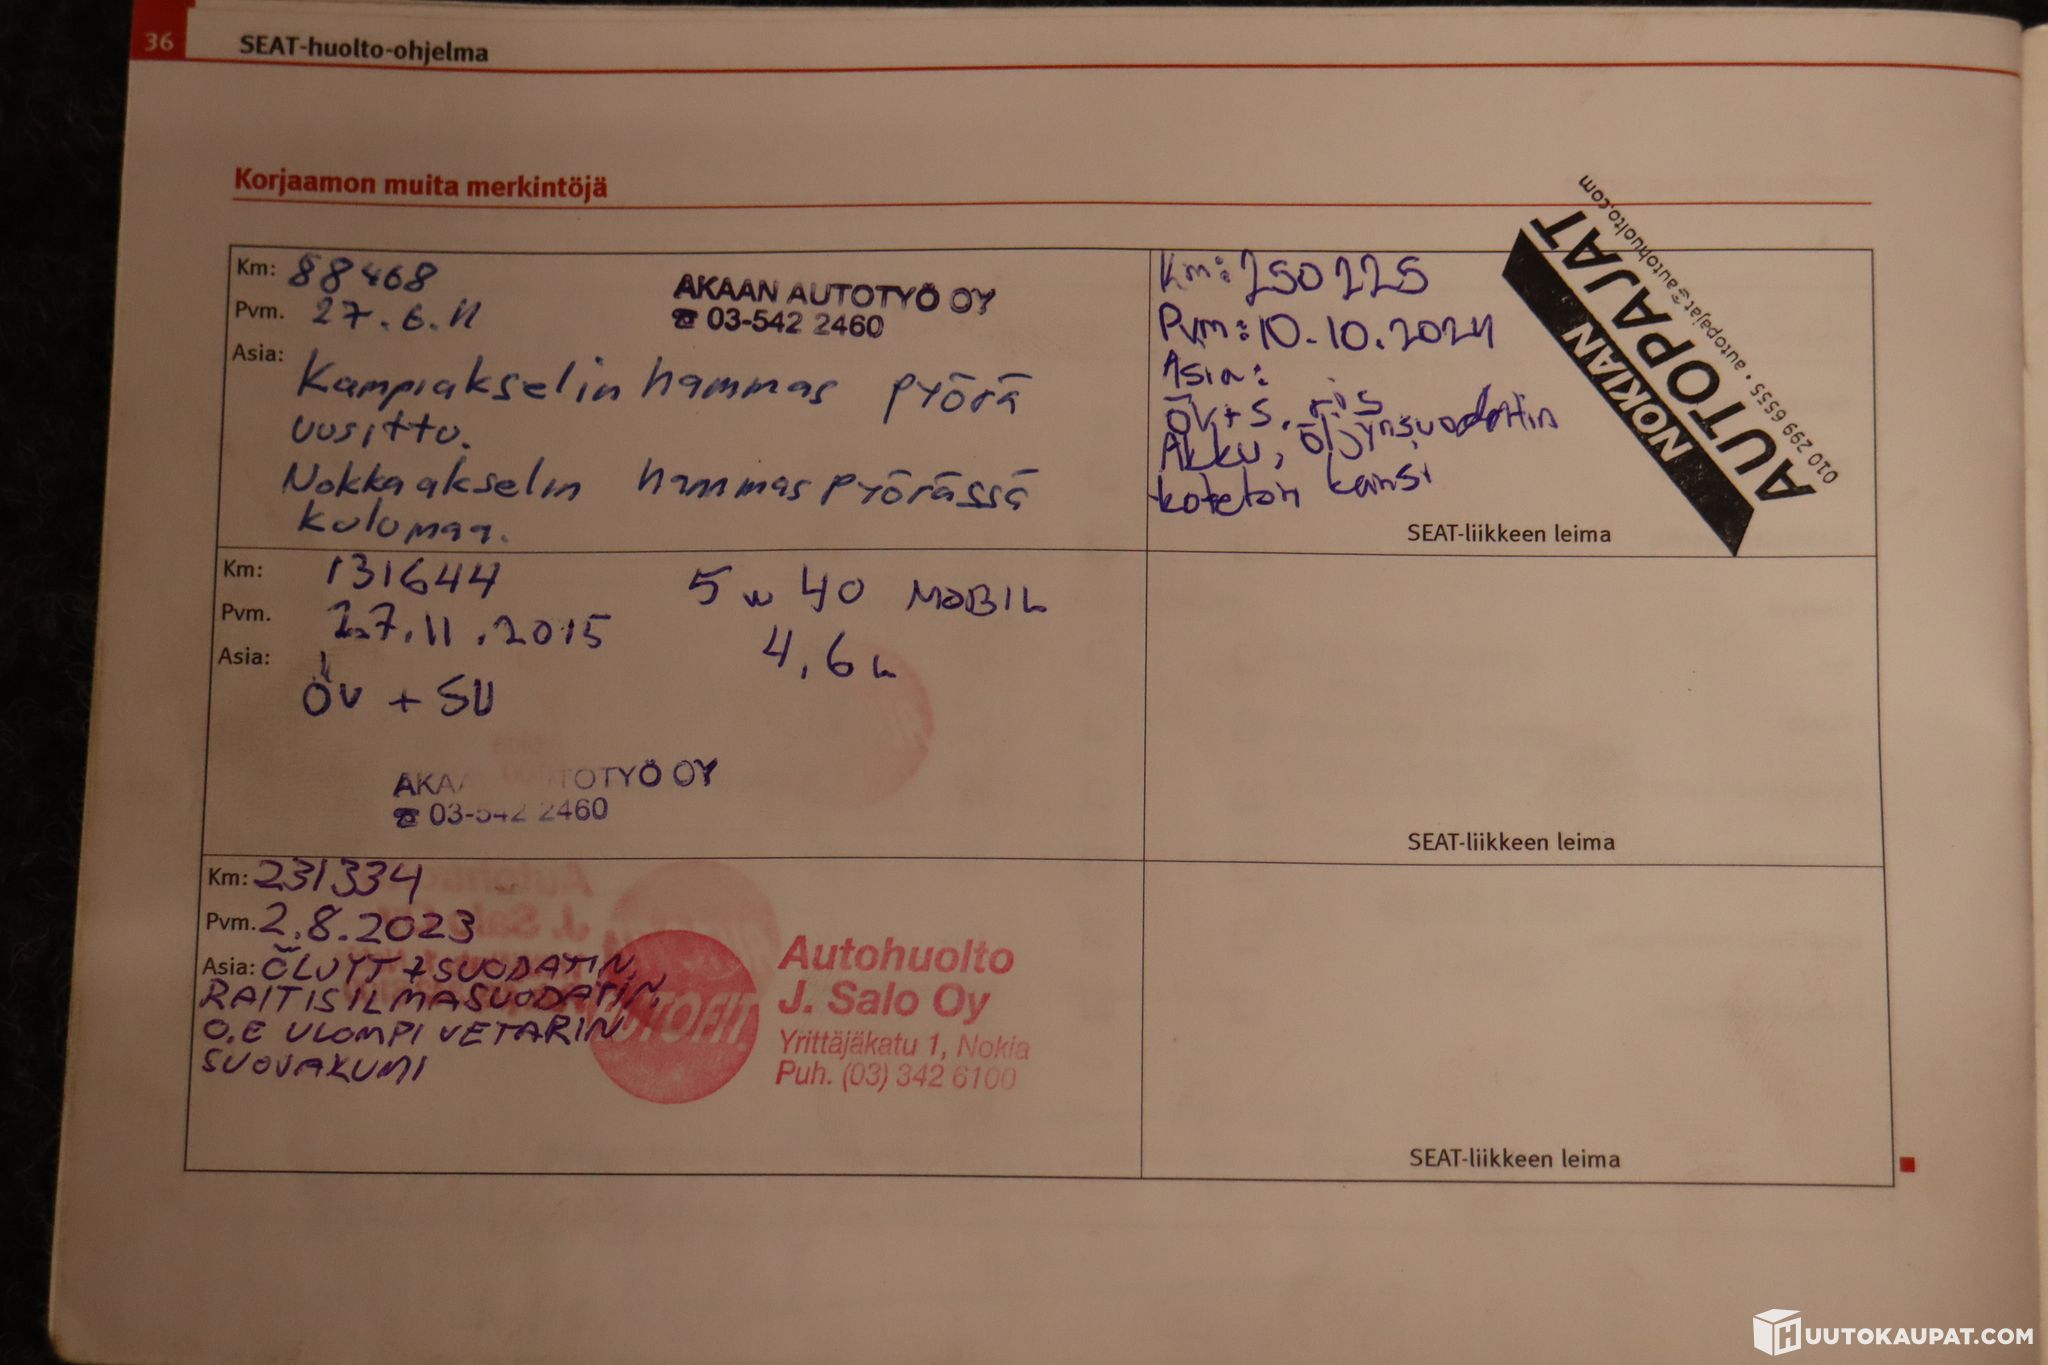 36
SEAT-huolto-ohjelma
Korjaamon muita merkintöjä
Km: 88468
Pvm. 27.6.11
AKAAN AUTOTYÖ OY
☎ 03-542 2460
Asia: Kampiakselin hammas pyörä
uusittu.
Nokka akselin hammaspyörässä
kulumaa.
Km: 250225
Pvm: 10.10.2024
Asia:
öv+s, ris
Akku, öljynsuodattin
kotelon kansi
NOKIAN
AUTOPAJAT
010 299 6555 • autopajat@autohuolto.com
SEAT-liikkeen leima
Km: 131644
Pvm. 27.11.2015
Asia: öv + SU
5w 40 MOBIL
4,6 L
AKAA TOTYÖ OY
☎ 03-542 2460
SEAT-liikkeen leima
Km: 231334
Pvm. 2.8.2023
Asia: ÖLJYT + SUODATIN,
RAITISILMASUODATIN,
O.E ULOMPI VETARIN
SUOJAKUMI
AUTOFIT
Autohuolto
J. Salo Oy
Yrittäjäkatu 1, Nokia
Puh. (03) 342 6100
SEAT-liikkeen leima
HUUTOKAUPAT.COM